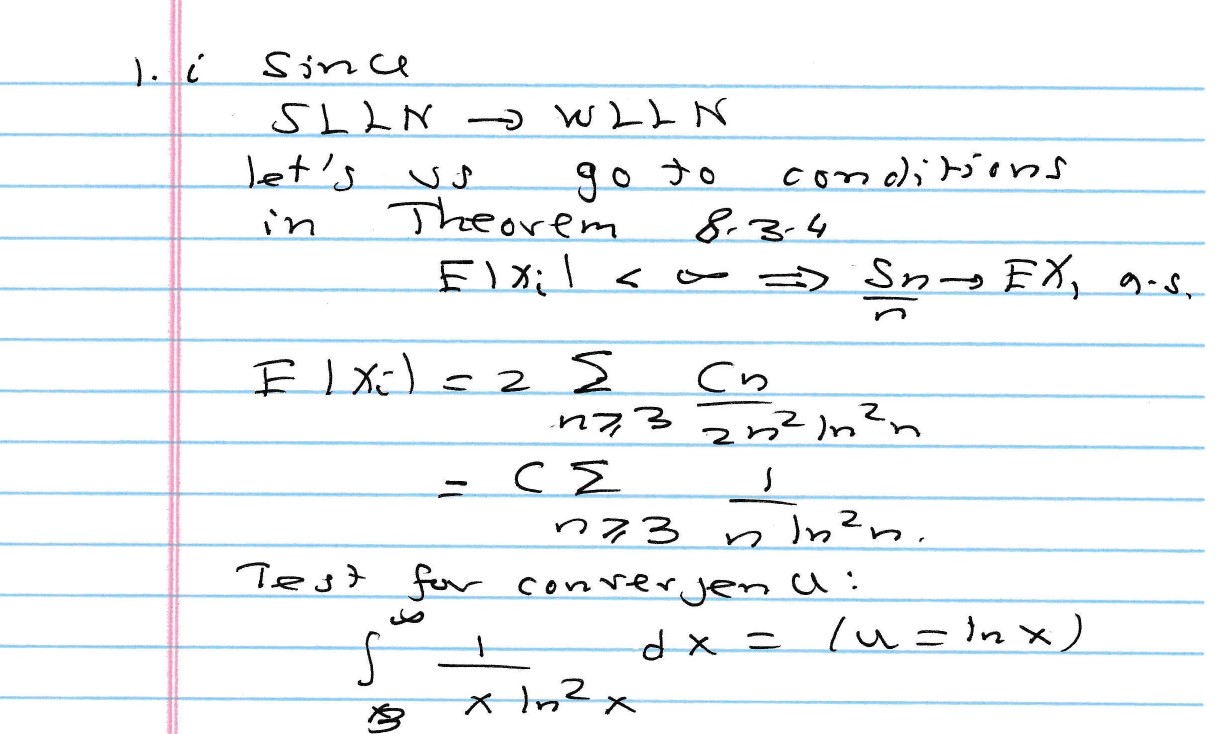 1. i Since
SLLN → WLLN
let's us go to conditions
in Theorem 8.3.4
E|Xi| < ∞ ⇒ Sn/n → EX1 a.s.
E|Xi| = 2 Σ n≥3 Cn/(2n² ln²n)
= C Σ n≥3 1/(n ln²n).
Test for converjence:
∫3^∞ 1/(x ln²x) dx = (u = ln x)